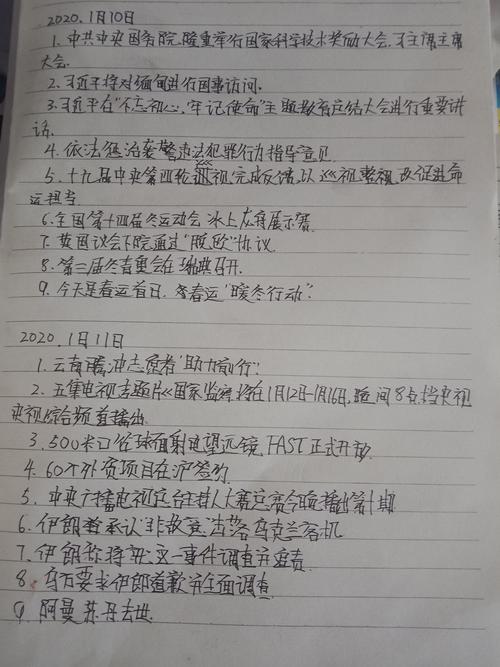 2020.1月10日
1. 中共中央国务院隆重举行国家科学技术奖励大会, 习主席主席
大会.
2. 习近平将对缅甸进行国事访问.
3. 习近平在“不忘初心、牢记使命”主题教育总结大会进行重要讲
话.
4. 依法惩治袭警违法犯罪行为指导意见
5. 十九届中央第四轮巡视完成反馈, 以巡视整视改促进
运担当
6. 全国第十四届冬运动会 冰上 展示赛.
7. 英国议会下院通过“脱欧”协议
8. 第三届冬青奥会在瑞典召开.
9. 今天是春运首日. 春运“暖冬行动”.
2020.1月11日
1. 云南腾冲志愿者“助力前行”.
2. 五集电视专题片《国家监察》将在1月12日-1月16日, 晚间8点档央视
央视综合频道播出.
3. 500米口径球面射电望远镜, FAST正式开放.
4. 60个外资项目在沪签约
5. 中央广播电视总台主持人大赛 今晚播出第十期
6. 伊朗 承认“非故意”击落乌克兰客机
7. 伊朗称将就这一事件调查并追责
8. 乌方要求伊朗道歉并全面调查
9. 阿曼苏丹去世.